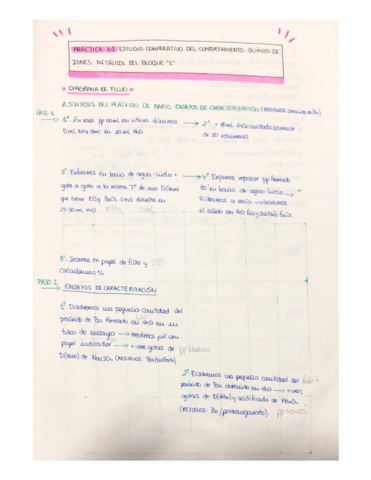 PRÁCTICA 11: ESTUDIO COMPARATIVO DEL COMPORTAMIENTO QUÍMICO DE
IONES METÁLICOS DEL BLOQUE "S"
DIAGRAMA DE FLUJO
A. SÍNTESIS DEL PERÓXIDO DE BARIO. ENSAYOS DE CARACTERIZACIÓN (RESIDUOS: peróxido de Ba)
PASO 1.
1º. En vaso pp 100mL en vitrina diluimos
5 mL NH3 conc en 10 mL H2O
2º. + 10 mL H2O2 cuidadosamente
de 20 volúmenes
3º. Enfriamos en baño de agua-hielo +
gota a gota a la misma Tº de una D(mi)
que tiene BaCl2 2H2O disuelto en
25-30 mL H2O
4º. Dejamos reposar pp formado
30' en baño de agua-hielo
Filtramos a vacío → lavamos
el sólido con H2O fría
5º. Secamos en papel de filtro y
calculamos %
PASO 2.
ENSAYOS DE CARACTERIZACIÓN
1º. Disolvemos una pequeña cantidad del
peróxido de Ba formado en H2O en un
tubo de ensayo → medimos pH con
papel indicador → + unas gotas de
D(mi) de Na2SO4 (RESIDUOS: Ba/sulfato)
pp blanco
2º. Disolvemos una pequeña cantidad del
peróxido de Ba obtenido en H2O → + unas
gotas de D(mi) y acidificada de KMnO4
(RESIDUOS: Ba/permanganato).